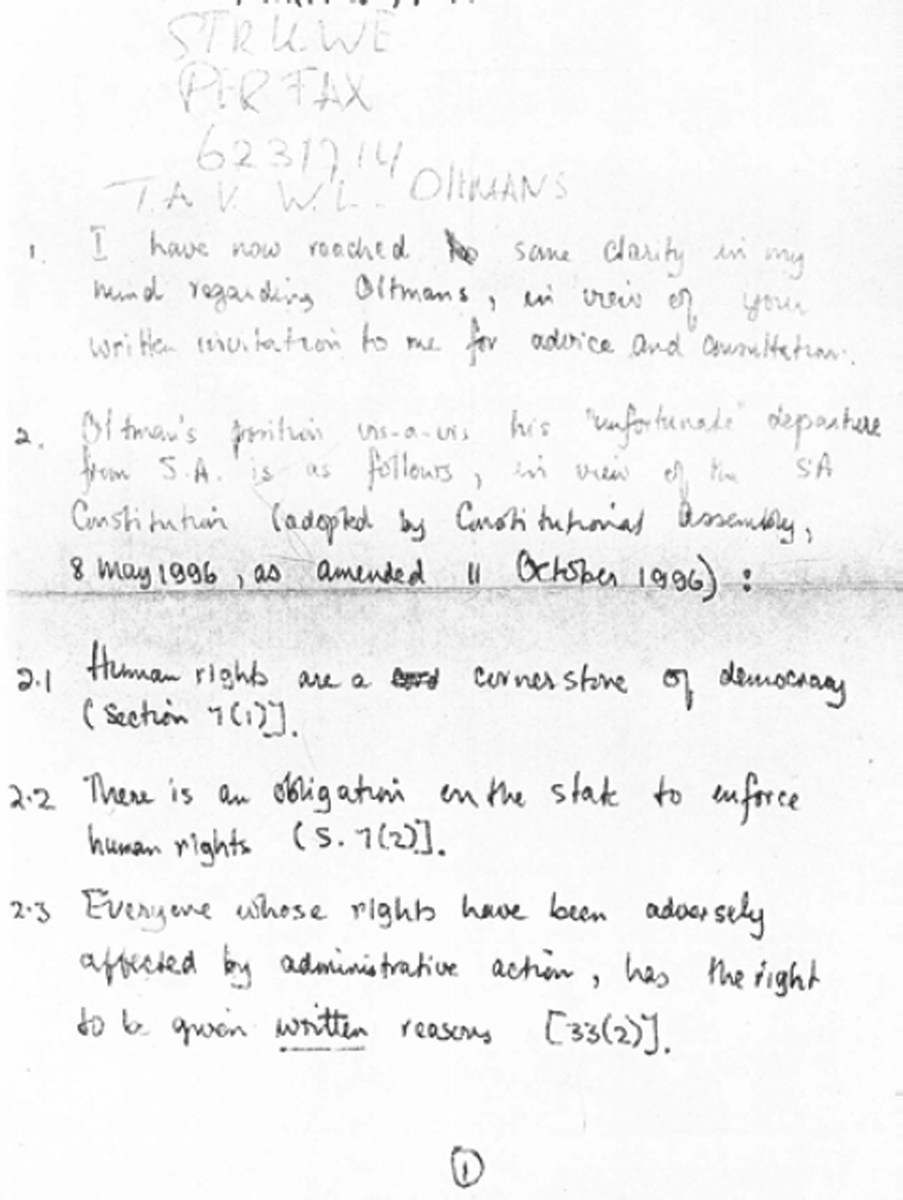 STRUWE
PER FAX
6231714
T.A.V. W.L. OltMANS
1. I have now reached some clarity in my
mind regarding Oltmans, in view of your
written invitation to me for advice and consultation.
2. Oltman's position vis-a-vis his "unfortunate" departure
from S.A. is as follows, in view of the SA
Constitution (adopted by Constitutional Assembly,
8 May 1996, as amended 11 October 1996):
2.1 Human rights are a cornerstone of democracy
(Section 7(1)].
2.2 There is an obligation on the state to enforce
human rights (S. 7(2)].
2.3 Everyone whose rights have been adversely
affected by administrative action, has the right
to be given written reasons [33(2)].
1